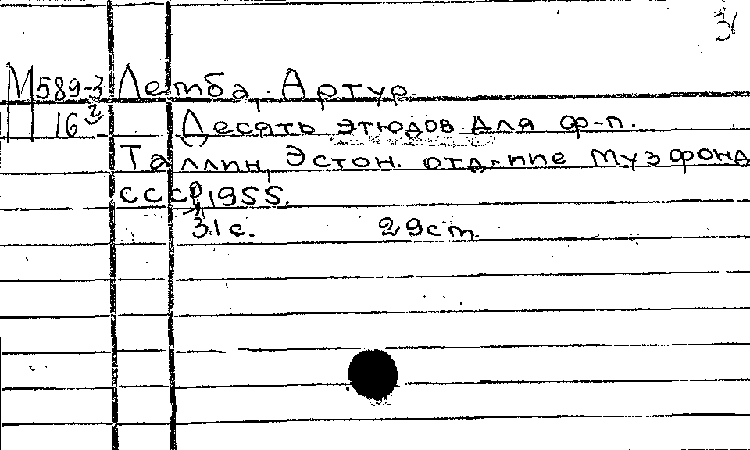 31
М589-3 Лемба, Артур
16 2 Десять этюдов для ф-п.
Таллин, Эстон. отд-ние Музфонда
СССР, 1955.
31 с. 29 см.